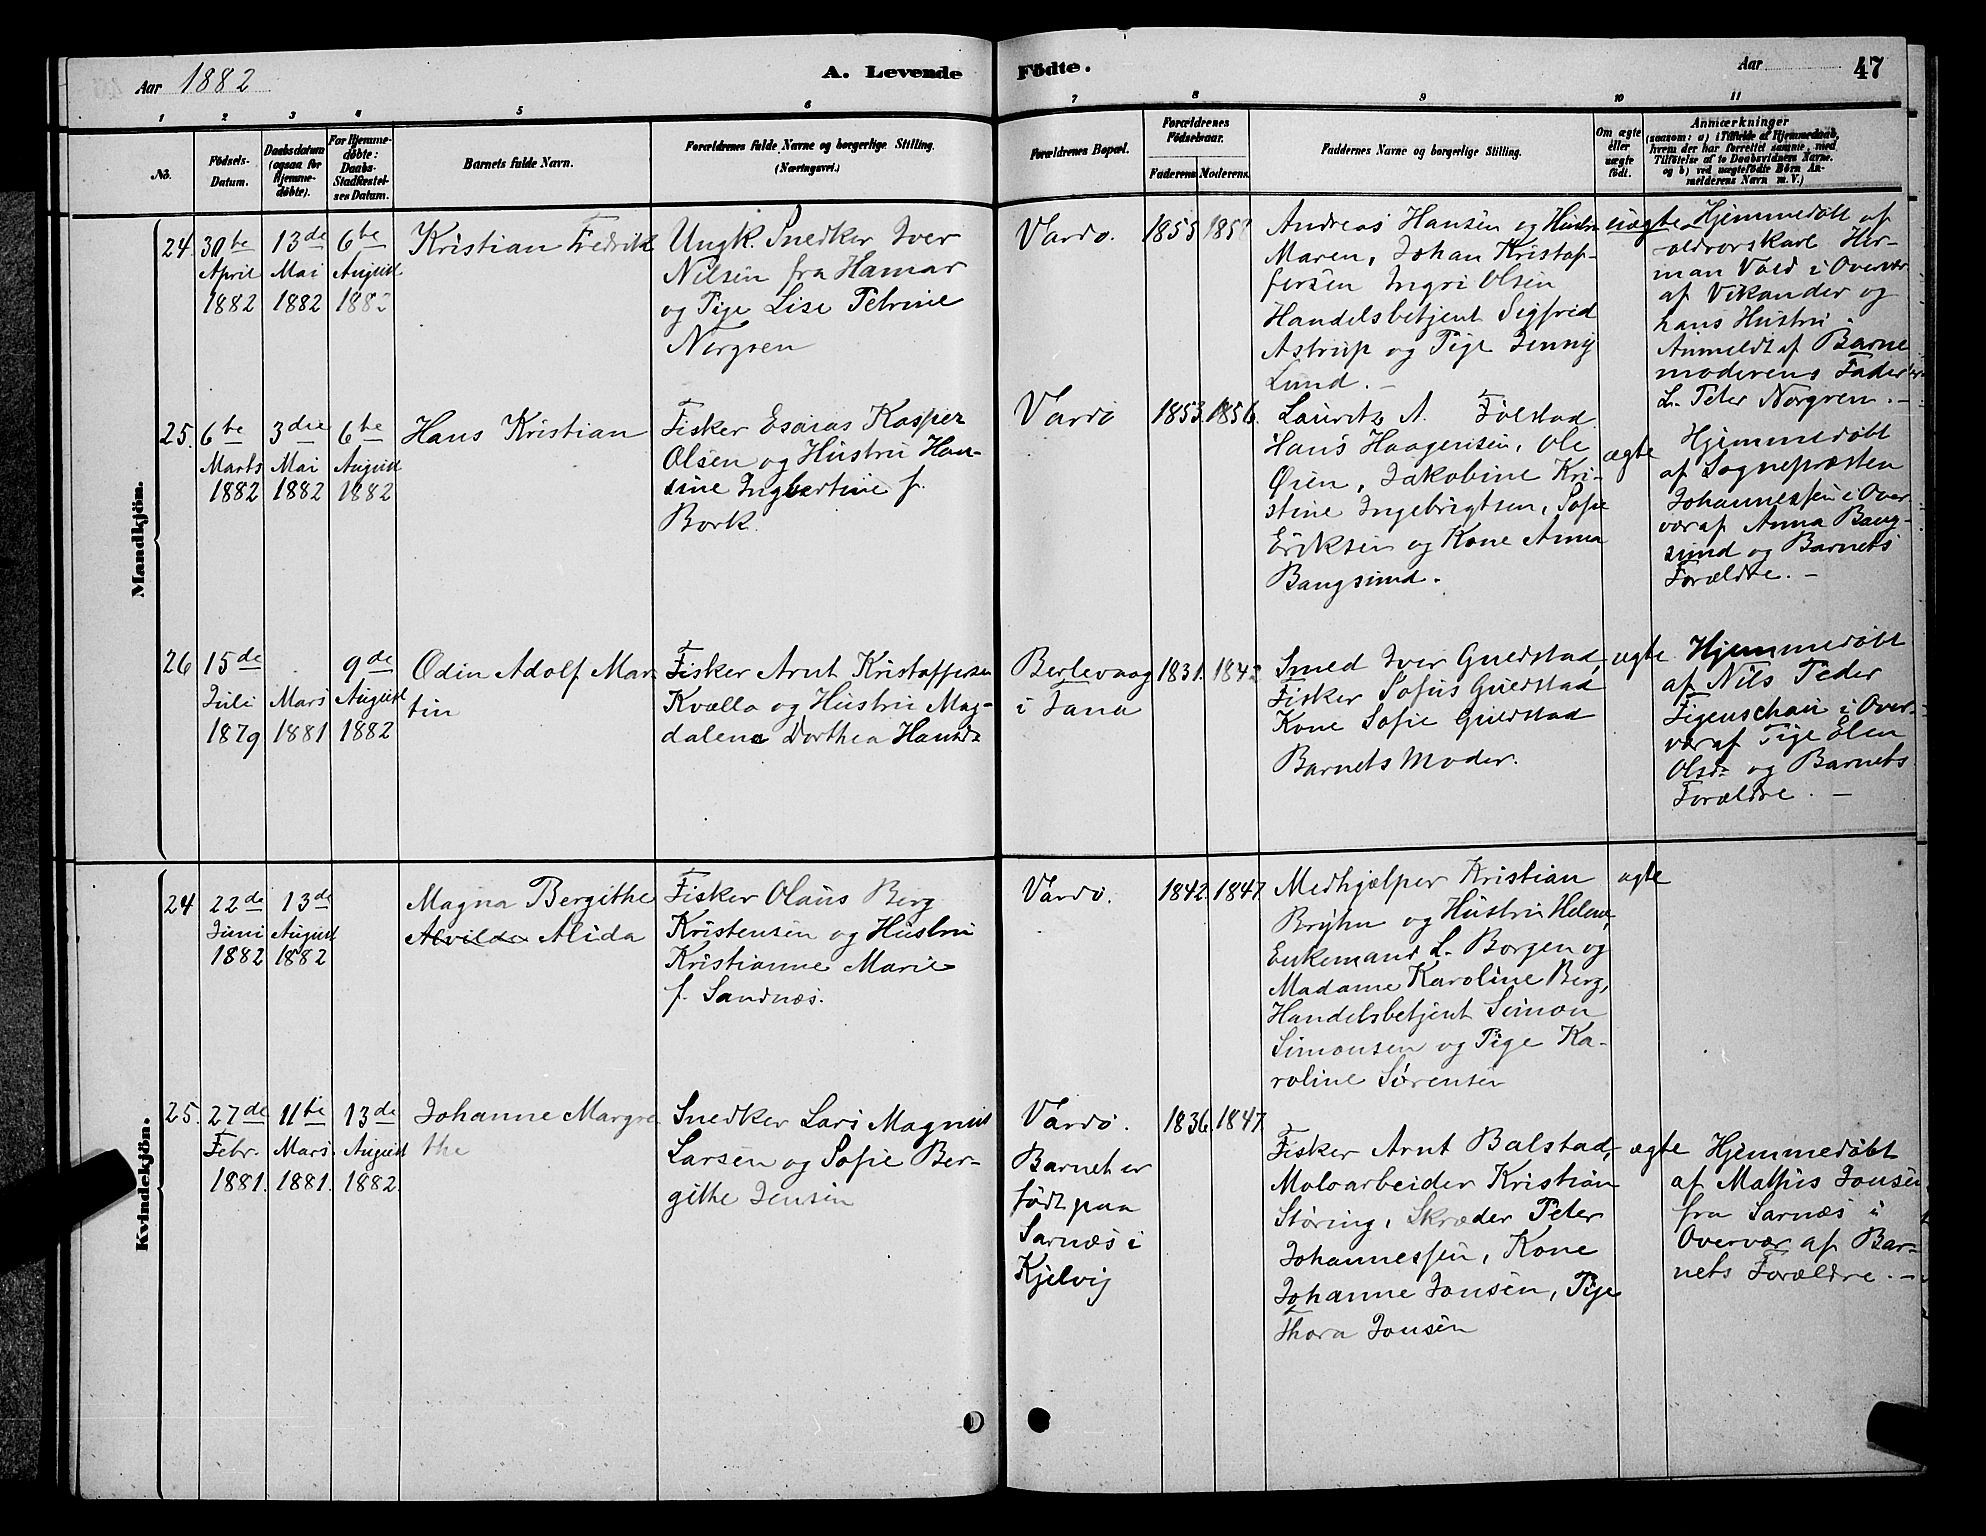 Aar 1882
A. Levende
Födte.
Aar
47
1
2
3
4
5
6
7
8
9
10
11
No.
Födsels-
Datum.
Daabsdatum
(ogsaa for
Hjemme-
döbte).
For Hjemme-
döbte:
Daabs-
Stadfæstel-
ses Datum.
Barnets fulde Navn.
Forældrenes fulde Navne og borgerlige Stilling.
(Næringsvei.)
Forældrenes Bopæl.
Forældrenes
Födselsaar.
Faderens.
Moderens.
Faddernes Navne og borgerlige Stilling.
Om ægte
eller
uægte
födt.
Anmærkninger
(saasom: a) i Tilfælde af Hjemmedaab,
hvem der har forrettet samme, med
Tilföielse af to Daabsvidners Navne.
og b) ved uægtefödte Börn An-
melderens Navn m. V.)
Mandkjön.
24.
30te
April
1882
13de
Mai
1882
6te
August
1882
Kristian Fredrik
Ungk. Snedker Iver
Nilsen fra Hamar
og Pige Lise Petrine
Norgren
Vardø.
1855
1858
Andreas Hansen og Hustru
Maren, Johan Kristof-
fersen Ingri Olsen
Handelsbetjent Sigfrid
Astrup og Pige Jenny
Lund. –
uægte
Hjemmedøbt af
oldrorskarl Her-
man Vold i Overvær
af Vikander og
hans Hustru.
Anmeldt af Barne
moderens Fader
L. Peter Norgren. –
25.
6te
Marts
1882
3die
Mai
1882
6te
August
1882
Hans Kristian
Fisker Esaias Kasper
Olsen og Hustru Han-
sine Ingbertine f.
Bork.
Vardø
1853.
1856.
Lauritz A. Folstad
Hans Haagensen, Ole
Øien, Jakobine Kri-
stine Ingebrigtsen, Sofie
Eriksen og Kone Anna
Bangsund.
ægte
Hjemmedøbt
af Sognepræsten
Johannessen i Over
vær af Anna Bang-
sund og Barnets
Forældre. –
26
15de
Juli
1879
Mars
1881
9de
August
1882
Odin Adolf Mar
tin
Fisker Arnt Kristoffersen
Kvælla og Hustru Mag-
dalena Dorthea Hansd.
Berlevaag
i Tana
1831.
1842
Smed Iver Guldstad,
Fisker Sofus Guldstad
Kone Sofie Guldstad
Barnets Moder.
ægte
Hjemmedøbt
af Nils Peder
Figenschau i Over-
vær af Pige Elen
Olsd. og Barnets
Forældre. –
Kvindekjön.
24
22de
Juni
1882
13de
August
1882
Magna Bergithe
Alvilda Alida
Fisker Olaus Berg
Kristensen og Hustru
Kristianne Marie
f. Sandnæs.
Vardø.
1842.
1847
Medhjælper Kristian
Bryhn og Hustru Helene,
Enkemand L. Borgen og
Madame Karoline Berg,
Handelsbetjent Simon
Simonsen og Pige Ka-
roline Sørensen
ægte
25.
27de
Febr.
1881.
11te
Mars
1881.
13de
August
1882.
Johanne Margre
the
Snedker Lars Magnus
Larsen og Sofie Ber-
githe Jensen
Vardø.
Barnet er
født paa
Sarnæs i
Kjelvig
1836.
1847
Fisker Arnt Balstad,
Moloarbeider Kristian
Støring, Skræder Peter
Johannessen, Kone
Johanne Jonsen, Pige
Thora Jonsen
ægte
Hjemmedøbt
af Mathis Jonsen
fra Sarnæs i
Overvær af Bar-
nets Forældre. –